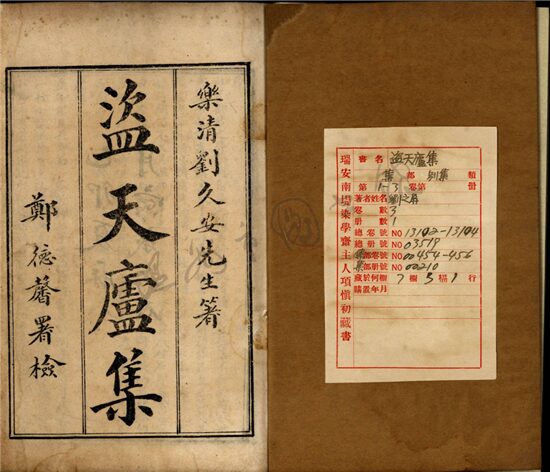 樂清劉久安先生箸
盜天廬集
鄭德馨署檢
瑞安南堤染學齋主人項慎初藏書
書名 盜天廬集
集部 別集 類
第1-3卷第 册
著者姓名 劉之屏
卷數 3
册數 1
總卷號 NO 13102-13104
總册號 NO 03519
集部卷號 NO 00454-456
集部册號 NO 00210
藏於何櫥 7櫥3格1行
購置年月